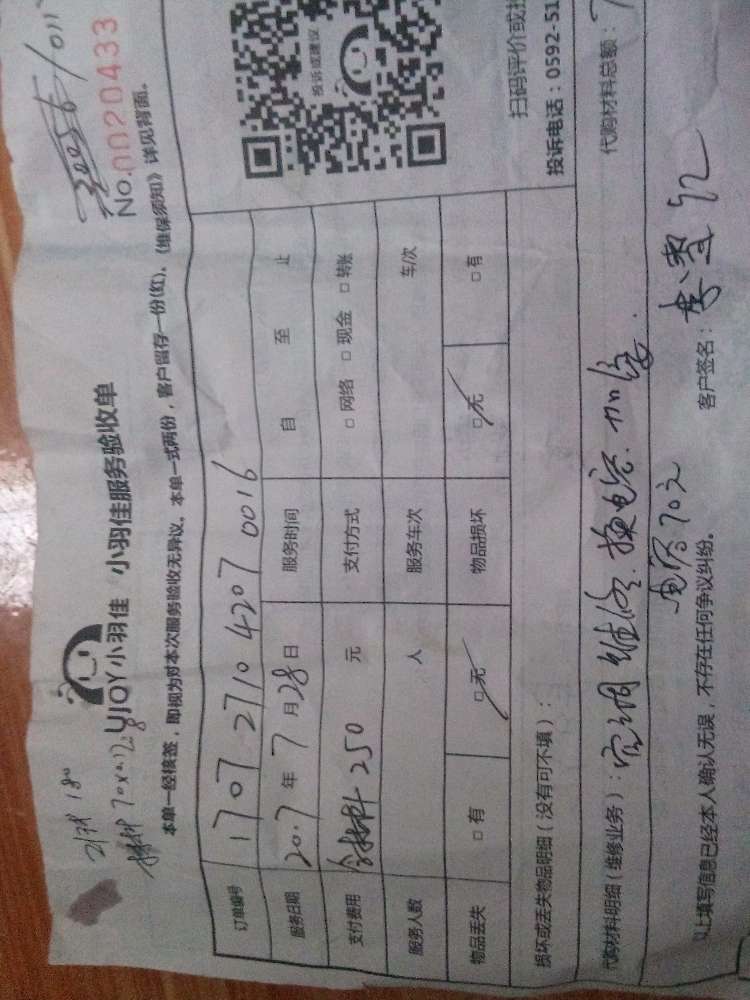 No.0020433
工时 180
材料 70×0.128
UJOY小羽佳 小羽佳服务验收单
本单一经核签，即视为对本次服务验收无异议。本单一式两份，客户留存一份(红)。《维保须知》详见背面。
订单编号 1707 2710 4207 0016
服务日期 2017年7月28日 服务时间 自 至 止
支付费用 含材料 250 元 支付方式 □ 网络 □ 现金 □ 转账
服务人数 人 服务车次 车/次
物品丢失 □ 有 □ 无 物品损坏 □ 无 □ 有
投诉或建议
扫码评价或投
投诉电话：0592-51
损坏或丢失物品明细（没有可不填）：
代购材料明细（维修业务）：空调维修.换电容.加氟. 代购材料总额：7
电容70元
以上填写信息已经本人确认无误，不存在任何争议纠纷。 客户签名：